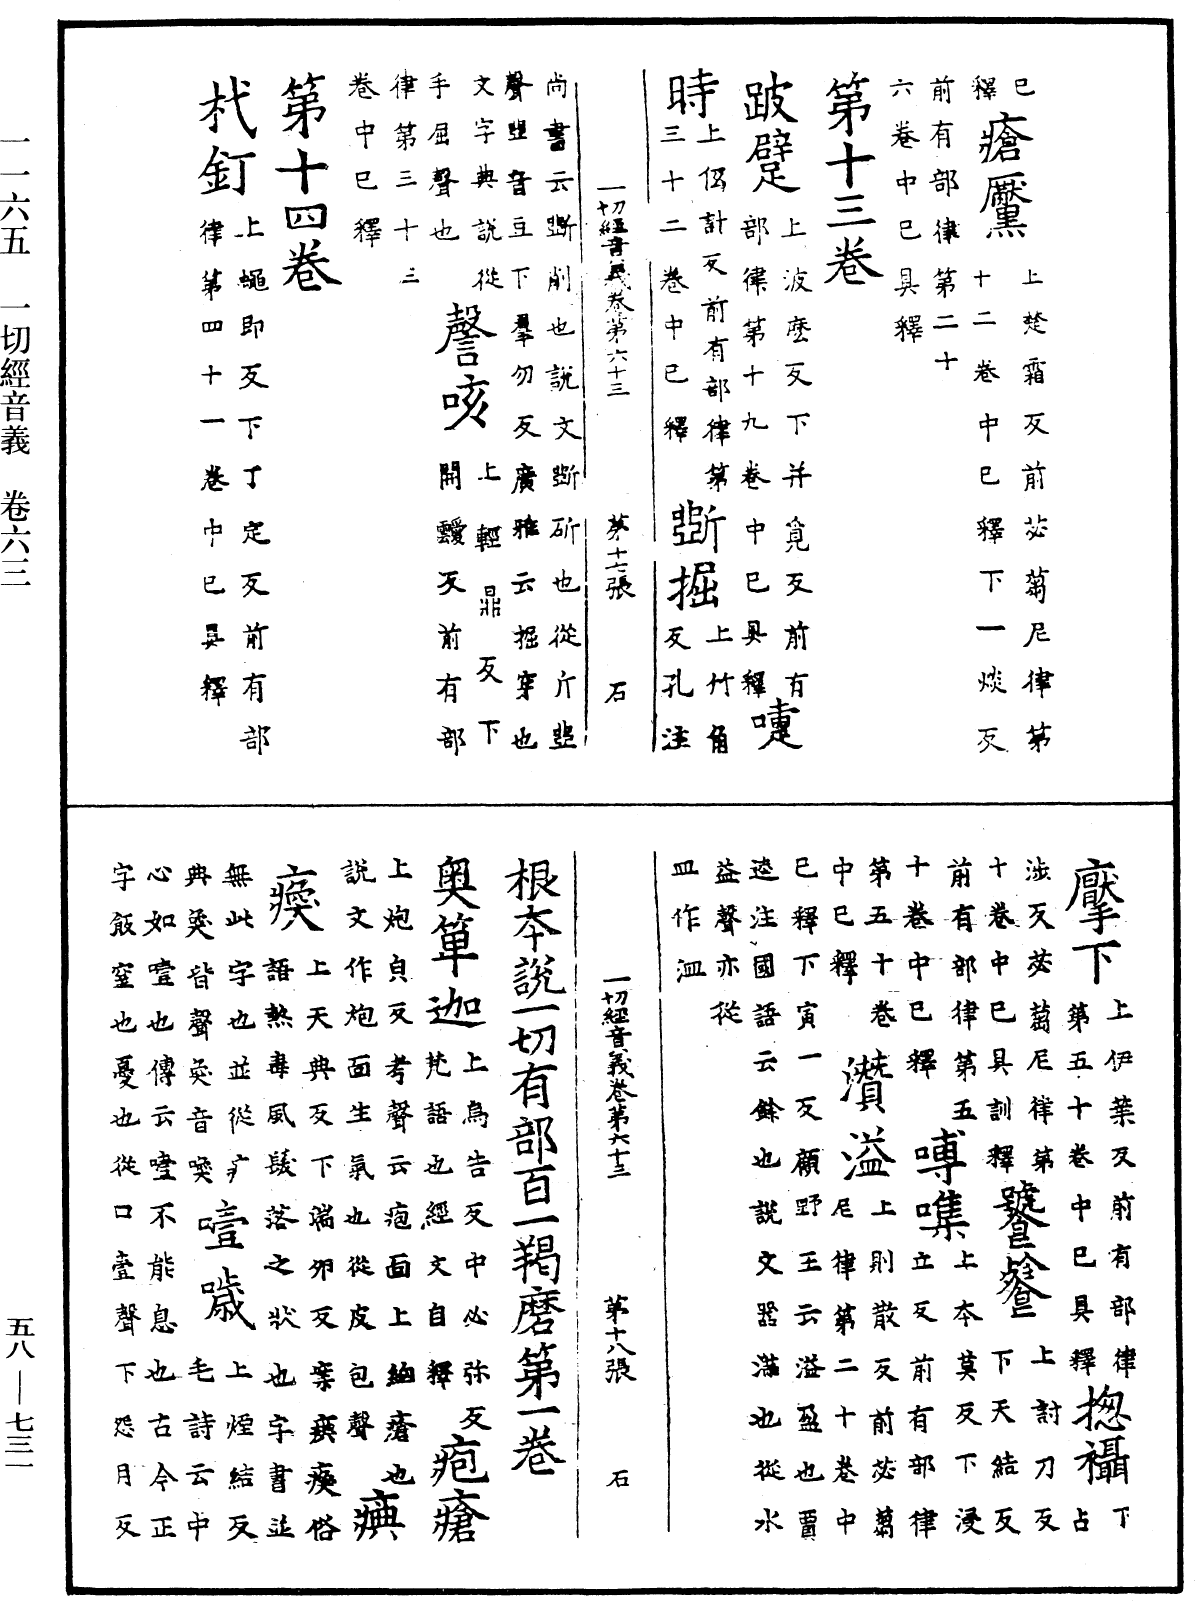 已
釋瘡黶上楚霜反前苾蒭尼律第十二卷中已釋下一焰反
前有部律第二十
六卷中已具釋
第十三卷
跛躄上波麼反下并覓反前有部律第十九卷中已具釋嚏
時上低計反前有部律第三十二卷中已釋斲掘上竹角反孔注
一切經音義卷第六十三 第十七張 石
尚書云斲削也說文斲斫也從斤㓸
聲㓸音豆下羣勿反廣雅云掘穿也
文字典說從
手屈聲也謦咳上輕鼎反下開靉反前有部
律第三十三
卷中已釋
第十四卷
杙釘上蠅即反下丁定反前有部律第四十一卷中已具釋
擪下上伊葉反前有部律第五十卷中已具釋揔襵下占
涉反苾蒭尼律第
十卷中已具訓釋饕餮上討刀反下天結反
前有部律第五
十卷中已釋嗼噍上本莫反下浸立反前有部律
第五十卷先
中已釋濽溢上則散反前苾蒭尼律第二十卷中
已釋下寅一反顧野王云溢盈也賈
逵注國語云餘也說文器滿也從水
益聲亦從
皿作洫
一切經音義卷第六十三 第十八張 石
根本說一切有部百一羯磨第一卷
奧箄迦上烏告反中必弥反梵語也經文自釋皰瘡
上炮皃反考聲云疱面上細瘡也
說文作炮面生氣也從皮包聲㾇
瘓上天典反下湍夘反案㾇瘓俗語熱毒風髮落之狀也字書並
無此字也並從疒
典奐皆聲奐音喚噎噦上煙結反毛詩云中
心如噎也傳云噎不能息也古今正
字飯窒也憂也從口壹聲下怨月反
一一六五 一切經音義 卷六三
五八—七三一